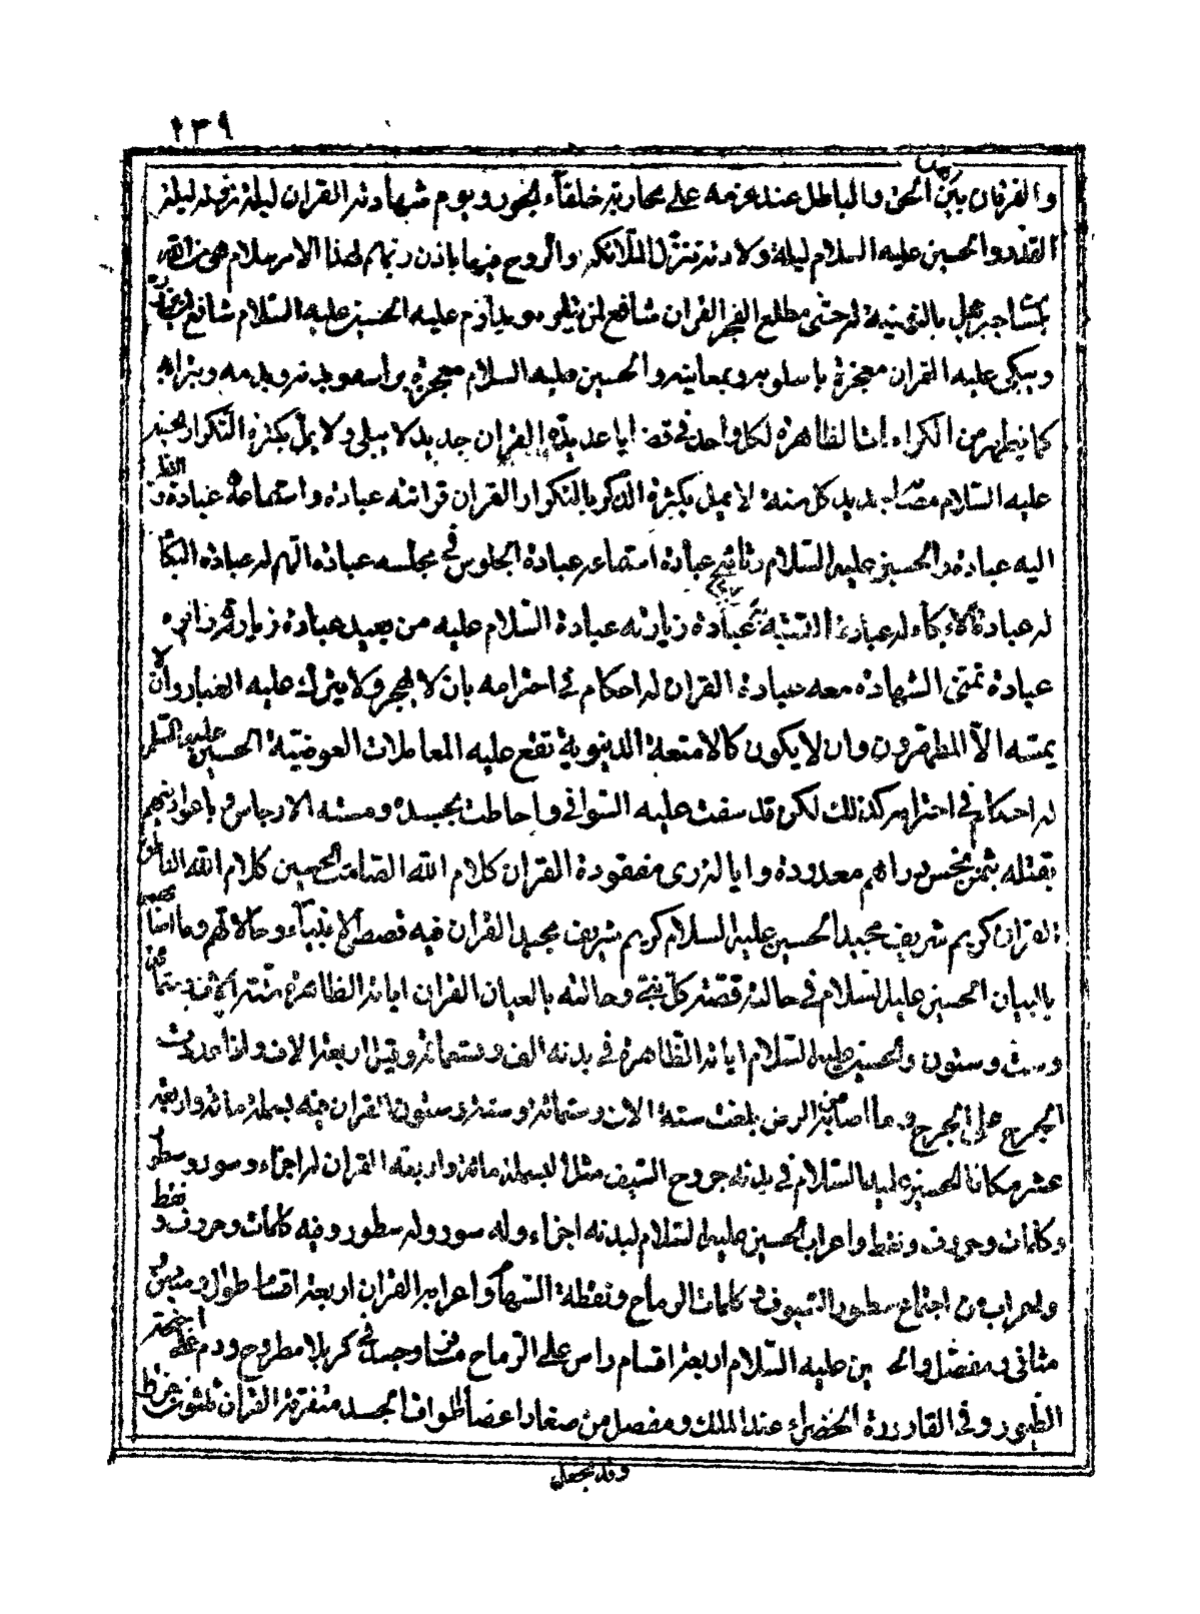 ٢٣٩
والفرقان بين الحق والباطل عند عزمه على محاربة خلفاء الجور ويوم شهادته القران ليلة نزوله ليلة
القدر والحسين عليه السلام ليلة ولادته تنزل الملائكة والروح فيها باذن ربهم لهذا الامر سلام هي من الله
جبرئيل بالتهنية له حتى مطلع الفجر القران شافع لمن يتلوه ويداوم عليه الحسين عليه السلام شافع لمن
ويبكي عليه القران معجزة باسلوبه وبمعانيه والحسين عليه السلام معجزة براسه وبدنه وبدمه وبترابه
كما يظهر من الكرامات الظاهرة لكل واحد في قضايا عديدة القران جديد لا يبلى ولا يمل بكثرة التكرار الحسين
عليه السلام مصابه جديد كل سنة لا يمل بكثرة الذكر بالتكرار القران قرائته عبادة واستماعه عبادة و النظر
اليه عبادة والحسين عليه السلام رثائه عبادة استماعه عبادة الجلوس في مجلسه عبادة الهم له عبادة البكا
له عبادة الابكاء له عبادة التشبه عبادة زيارته عبادة السلام عليه من بعيد عبادة زيارة زائره
عبادة تمنى الشهادة معه عبادة القران له احكام في احترامه بان لا يهجر ولا يترك عليه الغبار وان لا
يمسه الا المطهرون وان لا يكون كالامتعة الدنيوية تقع عليه المعاملات العوضية الحسين عليه السلم
له احكام في احترامه كذلك لكن قد سفت عليه السوافي واحاطت بجسده ومسته الارجاس باعوا دينهم
بقتله بثمن بخس دراهم معدودة وايا لترى مفقودة القران كلام الله الصامت الحسين كلام الله الناطق
القران كريم شريف مجيد الحسين عليه السلام كريم شريف مجيد القران فيه قصص الانبياء وحالاتهم وما اصابهم
بالبيان الحسين عليه السلام في حالته قصة كل نبي وحالته بالعيان القران اياته الظاهرة ستة الاف ستمائة
وست وستون والحسين عليه السلام اياته الظاهرة في بدنه الف وتسعمائة وقيل اربعة الاف واذا عددت
الجرح على الجرح وما اصابه من الرض بلغت ستة الاف وستمائة وستة وستون القران فيه بسملة مائة واربعة
عشر مكانا الحسين عليه السلام في بدنه جروح السيف مثل البسملة مائة واربعة القران له اجزاء وسور وسطور
وكلمات وحروف ونقط واعراب الحسين عليه السلام لبدنه اجزاء وله سور وله سطور وفيه كلمات وحروف و نقط
واعراب من اجتماع سطور السيوف و كلمات الرماح ونقطة السهام واعرابه القران اربعة اقسام طوال ومئين و
مثاني ومفصل والحسين عليه السلام اربعة اقسام راس على الرماح وجسد في كربلا مطروح ودم على اجنحة
الطيور وفي القارورة الخضراء عند الملك ومفصل من صغار اعضا اطراف الجسد متفرقة القران ثلثون جزء
وقد يجعل